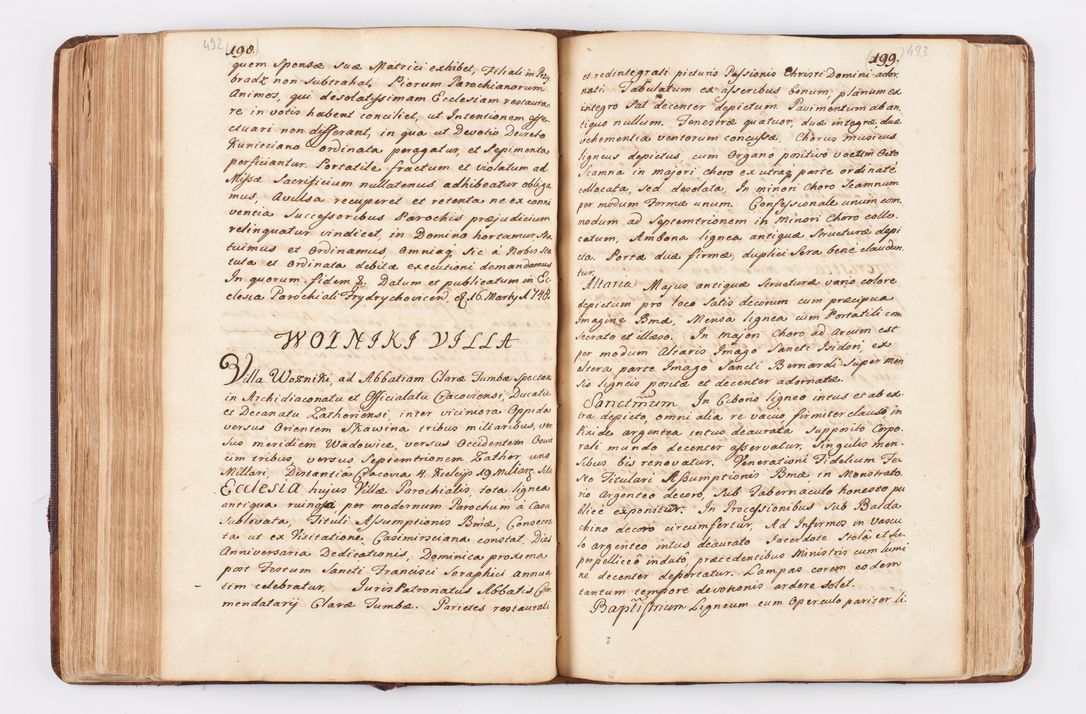 492
198.
quem Sponsæ suæ Matrici exhibet, Filiali in
non subtrahat. Piorum Parochianorum
Animos, qui desolatissimam Ecclesiam restaura-
re in votis habent conciliet, ut Intentionem effe-
ctuari non differant, in qua ut Devotio Decreto
Kunicciano ordinata peragatur, et Sepimenta
perficiantur. Portatile fractum et violatum ad
Missæ Sacrificium nullatenus adhibeatur obliga-
mus. Avulsa recuperet et retenta ne ex conni-
ventia Successoribus Parochis præjudicium
relinquatur vindicet, in Domino hortamur, Sta-
tuimus et ordinamus, omniaq sic à Nobis Sta-
tuta et ordinata debitæ executioni demandamus
In quorum fidem &. Datum et publicatum in Ec-
clesia Parochiali Frydrychovicen 16 Martij A 1748
WOZNIKI VILLA
Villa Wozniki, ad Abbatiam Claræ Tumbæ Spectans
in Archidiaconatu et Officialatu Cracoviensi, Ducatu
et Decanatu Zathoriensi, inter viciniora Oppida
versus Orientem Skawina tribus miliaribus, ver-
sus meridiem Wadowice, versus Occidentem
cim tribus, versus Septemtrionem Zathor uno
Milliari, Distantia Cracovia 4. Kielcijs 19. Miliaribus
Ecclesia hujus Villæ Parochialis, tota lignea
antiqua ruinosa per modernum Parochum à Casu
Sublevata, Tituli Assumptionis Bmæ, Consecra-
ta ut ex Visitatione Casimirsciana constat, Dies
Anniversaria Dedicationis, Dominica proxima
post Festum Sancti Francisci Seraphici annua-
tim celebratur. Juris Patronatus Abbatis Com-
mendatarij Claræ Tumbæ. Parietes restaurati
493
199.
et redintegrati picturis Passionis Christi Domini ador-
nati. Tabulatum ex asseribus bonum, planum ex
integro sat decenter depictum. Pavimentum ab an-
tiquo nullum. Fenestræ quatuor, duæ integræ, duæ
vehementia ventorum concussæ. Chorus musicus
ligneus depictus, cum Organo positivo vocum Octo
Scamna in majori Choro ex utraq parte ordinatè
collocata, sed desolata, In minori Choro Scamnum
per modum Formæ unum. Confessionale unum com-
modum ad Septemtrionem in Minori Choro collo-
catum, Ambona lignea antiquæ Structuræ depi-
cta. Portæ duæ firmæ, duplici Sera benè claudun-
tur.
Altaria Majus antiquæ Structuræ vario colore
depictum pro loco Satis decorum cum præcipua
Imagine Bmæ, Mensa lignea cum Portatili con-
secrato et illæso. In majori Choro ad Arcum est
per modum Altaris Imago Sancti Isidori, ex
altera parte Imago Sancti Bernardi Super men-
sis ligneis positæ et decenter adornatæ.
Sanctmum In Ciborio ligneo intus et ab ex-
tra depicto, omni alia re vacuo firmiter clauso, in
Pixide argentea intus deaurata Supposito Corpo-
rali mundo decenter asservatur, Singulis men-
sibus bis renovatur, Venerationi Fidelium Fe-
sto Titulari Assumptionis Bmæ in Monstrato-
rio Argenteo decoro, Sub Tabernaculo honesto pu-
blicè exponitur. In Processionibus sub Balda-
chino decoro circumfertur, Ad Infirmos in vascu-
lo argenteo intus deaurato Sacerdote Stolâ et Su-
perpelliceô induto, præcedentibus Ministris cum lumi-
ne decenter deportatur. Lampas coram eodem
tantum tempore devotionis ardere solet.
Baptismum Ligneum cum Operculo pariter li-